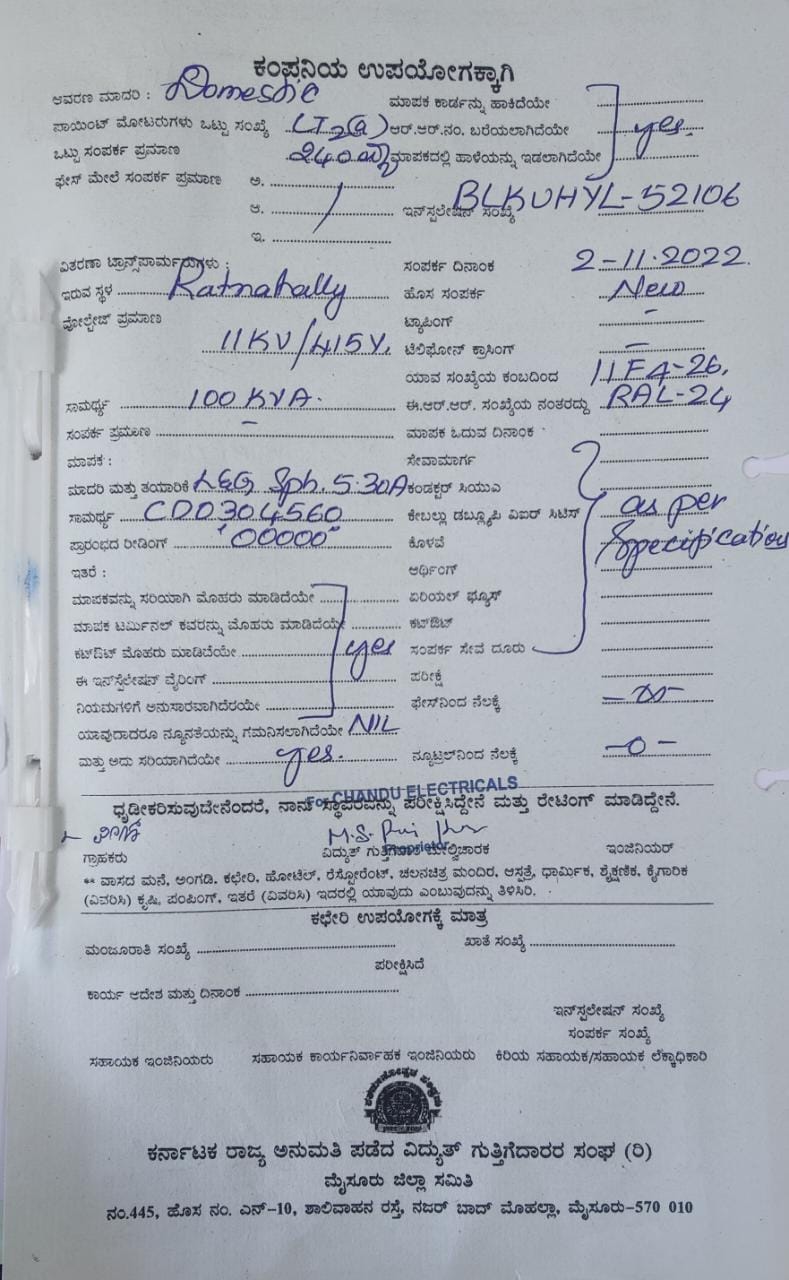 ಕಂಪನಿಯ ಉಪಯೋಗಕ್ಕಾಗಿ
ಆವರಣ ಮಾದರಿ : Domestic ಮಾಪಕ ಕಾರ್ಡನ್ನು ಹಾಕಿದೆಯೇ
ಪಾಯಿಂಟ್ ಮೋಟರುಗಳು ಒಟ್ಟು ಸಂಖ್ಯೆ LT2(a) ಆರ್.ಆರ್.ನಂ. ಬರೆಯಲಾಗಿದೆಯೇ yes.
ಒಟ್ಟು ಸಂಪರ್ಕ ಪ್ರಮಾಣ 240 ಮಾಪಕದಲ್ಲಿ ಹಾಳೆಯನ್ನು ಇಡಲಾಗಿದೆಯೇ
ಫೇಸ್ ಮೇಲೆ ಸಂಪರ್ಕ ಪ್ರಮಾಣ ಅ.
ಆ. ಇನ್‌ಸ್ಟಲೇಷನ್ ಸಂಖ್ಯೆ BLKUHYL-52106
ಇ.
ವಿತರಣಾ ಟ್ರಾನ್ಸ್‌ಪಾರ್ಮರುಗಳು : ಸಂಪರ್ಕ ದಿನಾಂಕ 2-11-2022.
ಇರುವ ಸ್ಥಳ Ratnahally ಹೊಸ ಸಂಪರ್ಕ New
ವೋಲ್ಟೇಜ್ ಪ್ರಮಾಣ ಟ್ಯಾಪಿಂಗ್ -
11KV/415V. ಟೆಲಿಫೋನ್ ಕ್ರಾಸಿಂಗ್ -
ಯಾವ ಸಂಖ್ಯೆಯ ಕಂಬದಿಂದ 11F4-26,
ಸಾಮರ್ಥ್ಯ 100 KVA. ಈ.ಆರ್.ಆರ್. ಸಂಖ್ಯೆಯ ನಂತರದ್ದು RAL-24
ಸಂಪರ್ಕ ಪ್ರಮಾಣ - ಮಾಪಕ ಓದುವ ದಿನಾಂಕ
ಮಾಪಕ : ಸೇವಾಮಾರ್ಗ
ಮಾದರಿ ಮತ್ತು ತಯಾರಿಕೆ L&G Sph. 5-30A ಕಂಡಕ್ಟರ್ ಸಿಯುಎ
ಸಾಮರ್ಥ್ಯ CDD304560 ಕೇಬಲ್ಲು ಡಬ್ಲ್ಯೂಪಿ ವಿಐರ್ ಸಿಟಿಸ್ as per
ಪ್ರಾರಂಭದ ರೀಡಿಂಗ್ "00000" ಕೊಳವೆ Specification
ಇತರೆ : ಆರ್ಥಿಂಗ್
ಮಾಪಕವನ್ನು ಸರಿಯಾಗಿ ಮೊಹರು ಮಾಡಿದೆಯೇ ಏರಿಯಲ್ ಫ್ಯೂಸ್
ಮಾಪಕ ಟರ್ಮಿನಲ್ ಕವರನ್ನು ಮೊಹರು ಮಾಡಿದೆಯೇ ಕಟ್‌ಔಟ್
ಕಟ್‌ಔಟ್ ಮೊಹರು ಮಾಡಿದೆಯೇ yes ಸಂಪರ್ಕ ಸೇವೆ ದೂರು
ಈ ಇನ್‌ಸ್ಟಲೇಷನ್ ವೈರಿಂಗ್ ಪರೀಕ್ಷೆ
ನಿಯಮಗಳಿಗೆ ಅನುಸಾರವಾಗಿದೆರಯೇ ಫೇಸ್‌ನಿಂದ ನೆಲಕ್ಕೆ -∞-
ಯಾವುದಾದರೂ ನ್ಯೂನತೆಯನ್ನು ಗಮನಿಸಲಾಗಿದೆಯೇ NIL
ಮತ್ತು ಅದು ಸರಿಯಾಗಿದೆಯೇ yes. ನ್ಯೂಟ್ರಲ್‌ನಿಂದ ನೆಲಕ್ಕೆ -0-
For CHANDU ELECTRICALS
ಧೃಡೀಕರಿಸುವುದೇನೆಂದರೆ, ನಾನು ಸ್ಥಾವರವನ್ನು ಪರೀಕ್ಷಿಸಿದ್ದೇನೆ ಮತ್ತು ರೇಟಿಂಗ್ ಮಾಡಿದ್ದೇನೆ.
Proprietor
ಗ್ರಾಹಕರು ವಿದ್ಯುತ್ ಗುತ್ತಿಗೆದಾರ ಮೇಲ್ವಿಚಾರಕ ಇಂಜಿನಿಯರ್
** ವಾಸದ ಮನೆ, ಅಂಗಡಿ, ಕಛೇರಿ, ಹೋಟೆಲ್, ರೆಸ್ಟೋರೆಂಟ್, ಚಲನಚಿತ್ರ ಮಂದಿರ, ಆಸ್ಪತ್ರೆ, ಧಾರ್ಮಿಕ, ಶೈಕ್ಷಣಿಕ, ಕೈಗಾರಿಕ
(ವಿವರಿಸಿ) ಕೃಷಿ, ಪಂಪಿಂಗ್, ಇತರೆ (ವಿವರಿಸಿ) ಇದರಲ್ಲಿ ಯಾವುದು ಎಂಬುವುದನ್ನು ತಿಳಿಸಿರಿ.
ಕಛೇರಿ ಉಪಯೋಗಕ್ಕೆ ಮಾತ್ರ
ಮಂಜೂರಾತಿ ಸಂಖ್ಯೆ ಖಾತೆ ಸಂಖ್ಯೆ
ಪರೀಕ್ಷಿಸಿದೆ
ಕಾರ್ಯ ಆದೇಶ ಮತ್ತು ದಿನಾಂಕ
ಇನ್‌ಸ್ಟಲೇಷನ್ ಸಂಖ್ಯೆ
ಸಂಪರ್ಕ ಸಂಖ್ಯೆ
ಸಹಾಯಕ ಇಂಜಿನಿಯರು ಸಹಾಯಕ ಕಾರ್ಯನಿರ್ವಾಹಕ ಇಂಜಿನಿಯರು ಕಿರಿಯ ಸಹಾಯಕ/ಸಹಾಯಕ ಲೆಕ್ಕಾಧಿಕಾರಿ
ಕರ್ನಾಟಕ ರಾಜ್ಯ ಅನುಮತಿ ಪಡೆದ ವಿದ್ಯುತ್ ಗುತ್ತಿಗೆದಾರರ ಸಂಘ (ರಿ)
ಮೈಸೂರು ಜಿಲ್ಲಾ ಸಮಿತಿ
ನಂ.445, ಹೊಸ ನಂ. ಎನ್-10, ಶಾಲಿವಾಹನ ರಸ್ತೆ, ನಜರ್ ಬಾದ್ ಮೊಹಲ್ಲಾ, ಮೈಸೂರು-570 010